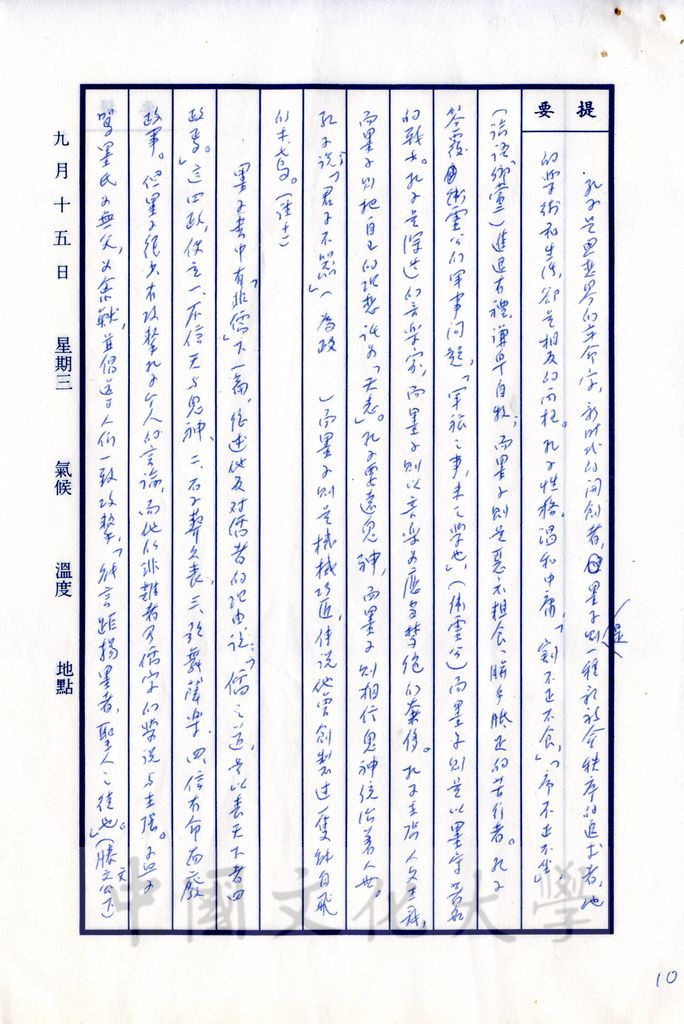 提要
孔子是思想界的革命家,新時代的開創者,墨子則是一種新社會秩序的追求者,他
的學術和生活,卻是相反的兩極。孔子性格,溫和中庸,「割不正不食」,「席不正不坐」,
(論語鄉黨)進退有禮,謙卑自牧;而墨子則是惡衣粗食、胼手胝足的苦行者。孔子
答覆衛靈公的軍事問題,「軍旅之事,未之學也」,(衛靈公)而墨子則是以墨守著名
的戰士。孔子是深造的音樂家,而墨子則以音樂為應當禁絕的奢侈。孔子主張人文主義,
而墨子則把自己的理想託為「天志」。孔子要遠鬼神,而墨子則相信鬼神統治著人世。
孔子說:「君子不器」(為政 )而墨子則是機械巧匠,傳說他曾創製過一隻能自飛
的木鳶。
墨子書中有「非儒」下一篇,總述他反對儒者的理由說:「儒之道,足以喪天下者四
政焉。」這四政,便是一、不信天與鬼神,二、厚葬久喪,三、弦歌鼓舞,四、信有命
政事。但墨子很少有攻擊孔子個人的言論,而他的非難者乃儒家的學說與主張。孟子
罵墨氏為無父,為禽獸,並倡導人們一致攻擊,「能言距楊墨者,聖人之徒也。」(滕文公下)
九月十五日 星期三 氣候 溫度 地點
中國文化大學
10